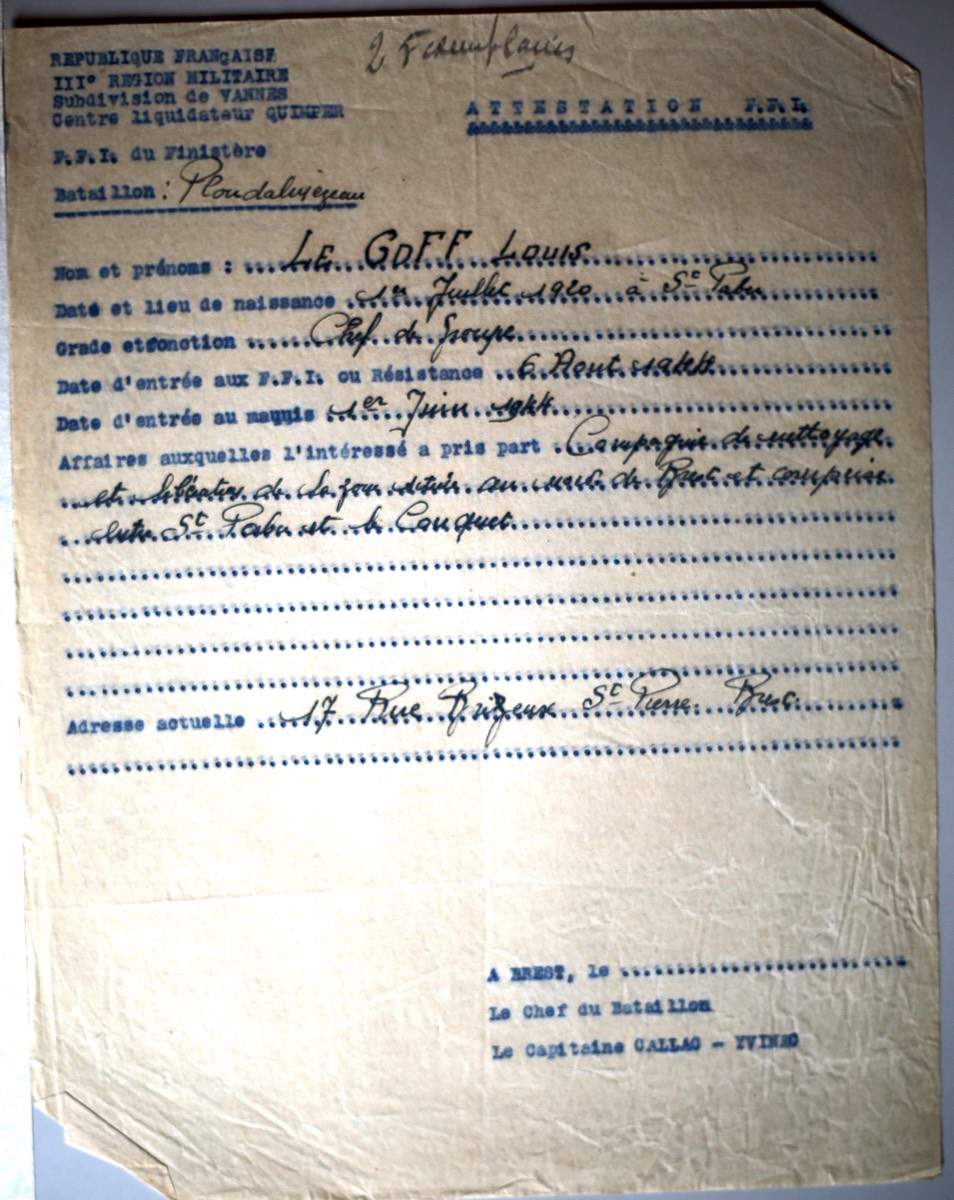 2 Exemplaires
REPUBLIQUE FRANÇAISE
III° REGION MILITAIRE
Subdivision de VANNES
Centre liquidateur QUIMPER
ATTESTATION F.F.I.
&&&&&&&&&&&&&&&&&&&&&&&&&&&&&&
F.F.I. du Finistère
Bataillon : Ploudalmézeau
Nom et prénoms : LE GOFF Louis
Date et lieu de naissance 1er Juillet 1920 à St Pabu
Grade et fonction Chef de Groupe
Date d'entrée aux F.F.I. ou Résistance 6 Aout 1944
Date d'entrée au maquis 1er Juin 1944
Affaires auxquelles l'intéressé a pris part Campagnie de nettoyage
et libération de la zone située au nord de Brest et comprise
entre St Pabu et le Conquet
Adresse actuelle 17 Rue Brizeux St Pierre Brest
A BREST, le
Le Chef du Bataillon
Le Capitaine CALLAC - YVINEC